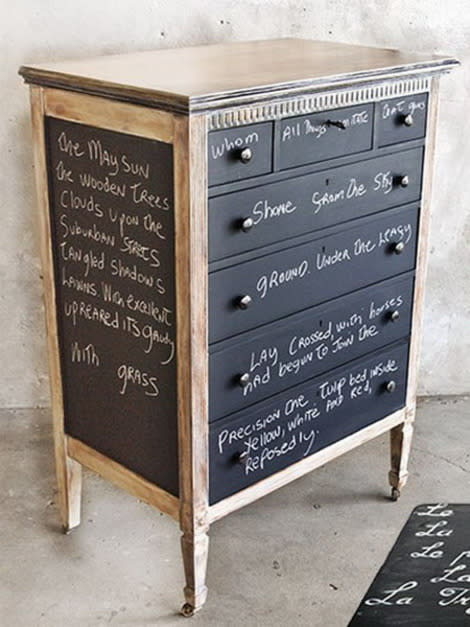 The May Sun
The Wooden Trees
Clouds Upon the
Suburban Streets
Tangled Shadows
Lawns. With excellent
upreared its gaudy
With grass
Whom
All Things imitate
Shone from the Sky
ground. Under the leafy
Lay Crossed, with horses
had begun to Join the
Precision the Tulip bed inside
Yellow, White and Red,
reposedly.
La
Le
La
La